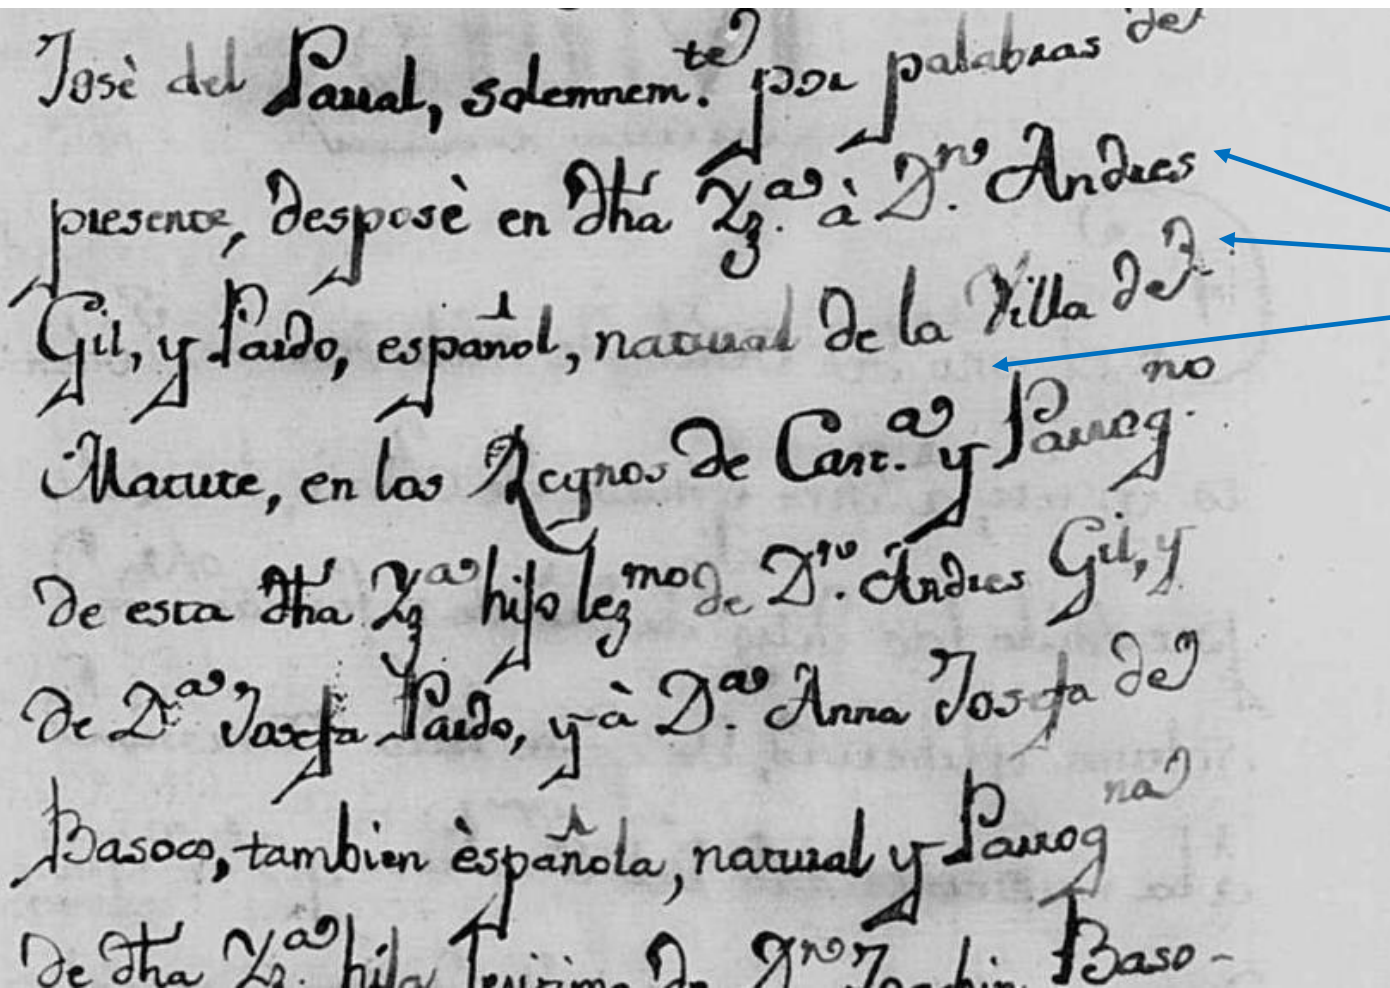 José del Parral, solemnem.te por palabras de
presente, desposè en dha Yg.a à D.n Andres
Gil, y Pardo, español, natural de la Villa de
Matute, en los Reynos de Cast.a y Parrog.no
de esta dha Yg.a hijo leg.mo de D.n Andres Gil, y
de D.a Josefa Pardo, y à D.a Anna Josefa de
Basoco, tambien èspañola, natural y Parrog.na
de dha Yg.a hija legitima de D.n Joachin Baso-